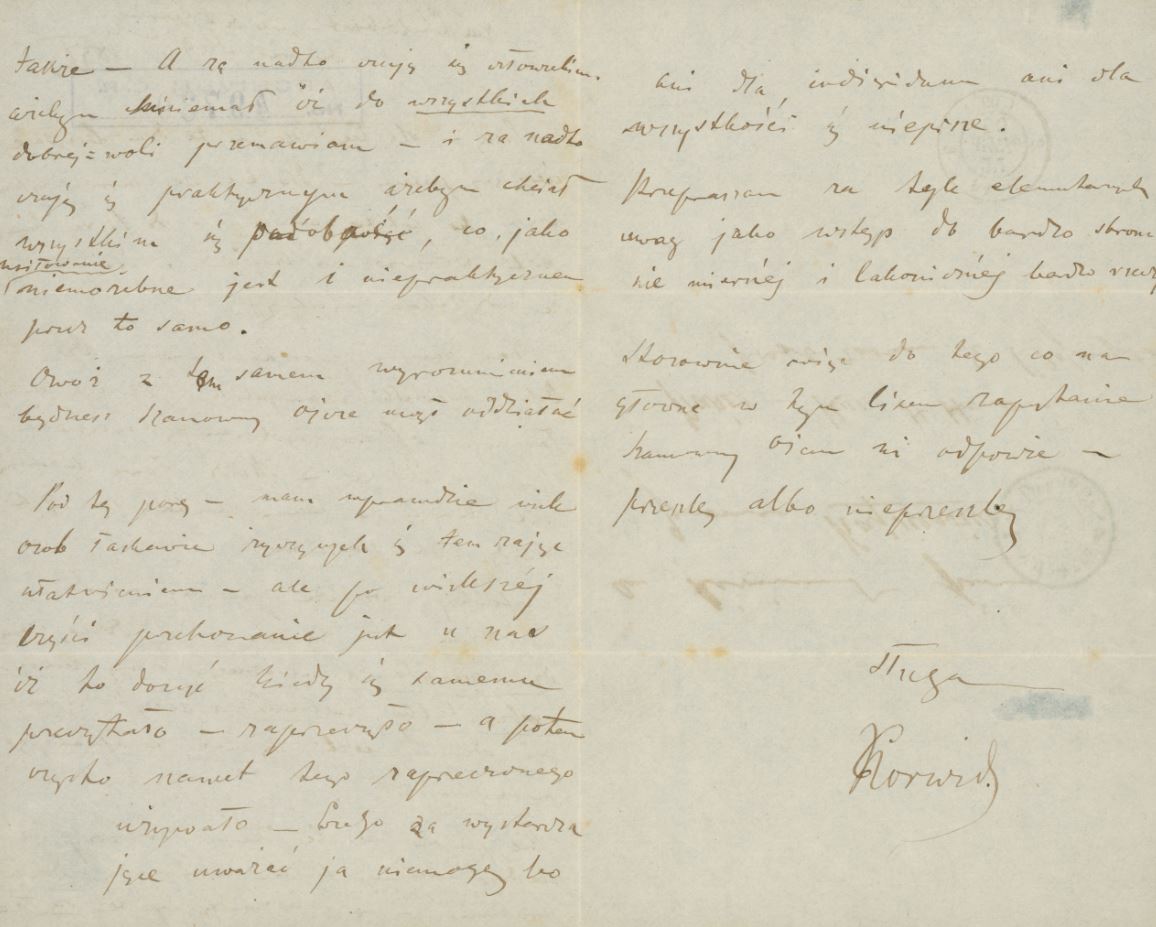 także — A za nadto czują się człowiekiem
ażebym mniemał iż do wszystkich
dobrej=woli przemawiam — i za nadto
czuję się praktycznym ażebym chciał
wszystkim się podobać, co, jako
usiłowanie
niemożebne jest i niepraktycznem
przez to samo.
Owoż z tem samem wyrozumieniem
będziesz Szanowny Ojcze mógł oddziałać
Pod tę porę — mam wprawdzie wiele
osób łaskawie życzących się tem zająć
właściwiem — ale po większéj
części przekonanie jest u nas
iż to dosyć kiedy się samemu
przeczytało — zaprzeczyło — a potem
często nawet tego zaprzeczonego
używało — Czego za wystarcza
jące uważać ja niemogę bo
ani dla indiwiduum ani dla
wszystkości się niepisze.
Przepraszam za tyle elementarnych
uwag jako wstęp do bardzo
nie miernéj i lakonicznéj bardzo rzeczy
Stosownie więc do tego co na
główne w tym liście zapytanie
Szanowny Ojciec mi odpowie —
prześlę albo nieprześlę
sługa
CNorwid